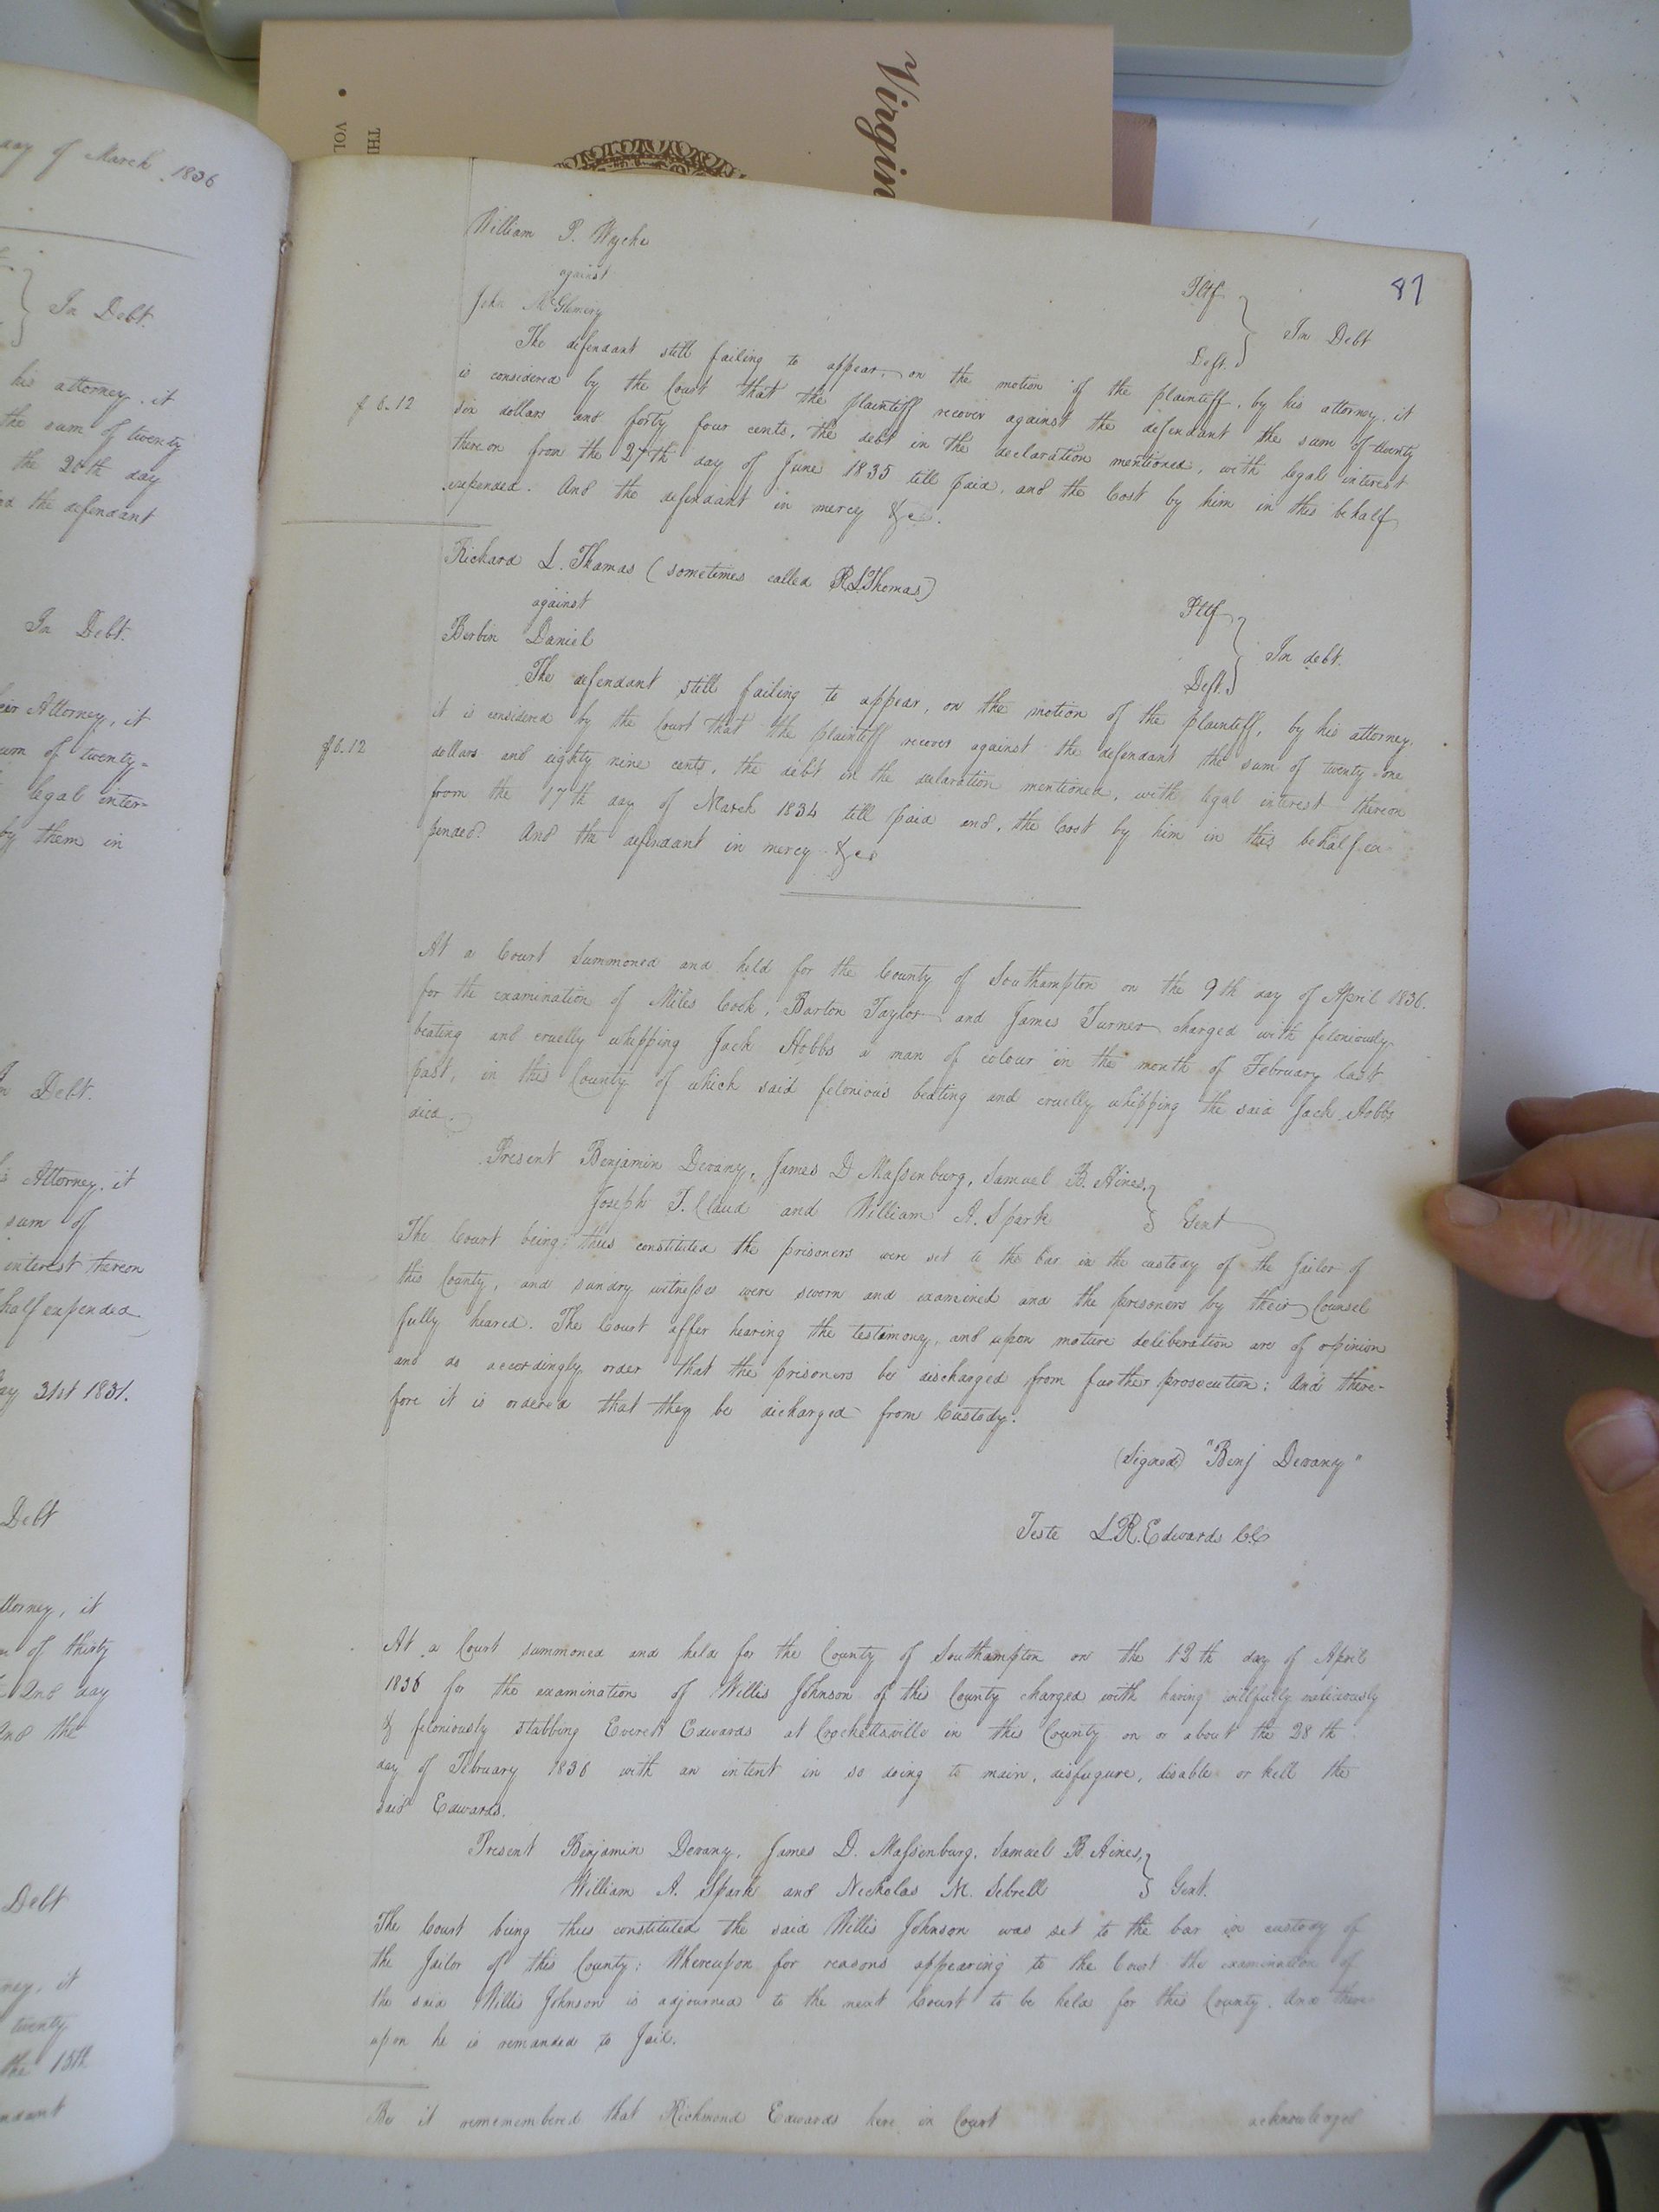 Virgin
TH
VOL
ay of March 1836
In Debt.
his attorney, it
the sum of twenty
the 20th day
the defendant
In Debt.
Attorney, it
um of twenty=
legal inter=
by them in
Debt.
Attorney, it
sum of
interest thereon
half expended
ay 31st 1831.
Debt
ttorney, it
of thirty
2nd day
And the
Debt
ney, it
twenty
the 15th
ndant
87
William P. Wyche Pltf
against In Debt
John McGlemery Deft.
The defendant still failing to appear, on the motion of the plaintiff, by his attorney, it
is considered by the Court that the plaintiff recover against the defendant the sum of twenty
$6.12 six dollars and forty four cents, the debt in the declaration mentioned, with legal interest
thereon from the 27th day of June 1835 till paid, and the Cost by him in this behalf
expended. And the defendant in mercy &c.
Richard L. Thomas (sometimes called R L Thomas) Pltf
against In debt.
Berbin Daniel Deft.
The defendant still failing to appear, on the motion of the plaintiff, by his attorney,
it is considered by the Court that the plaintiff recover against the defendant the sum of twenty-one
$6.12 dollars and eighty nine cents, the debt in the declaration mentioned, with legal interest thereon
from the 17th day of March 1834 till paid and, the Cost by him in this behalf ex-
pended. And the defendant in mercy &c
At a Court Summoned and held for the County of Southampton on the 9th day of April 1836.
for the examination of Miles Cook, Barton Taylor and James Turner charged with feloniously
beating and cruelly whipping Jack Hobbs a man of colour in the month of February last
past, in this County of which said felonious beating and cruelly whipping the said Jack Hobbs
died.
Present Benjamin Devany, James D Massenburg, Samuel B. Hines,
Joseph T. Claud and William A. Spark Gent
The Court being thus constituted the prisoners were set to the bar in the custody of the Jailor of
this County, and sundry witnesses were sworn and examined and the prisoners by their Counsel
fully heared. The Court after hearing the testimony, and upon mature deliberation are of opinion
and do accordingly order that the prisoners be discharged from further prosecution: And there-
fore it is ordered that they be dicharged from Custody.
(Signed) "Benj Devany"
Teste L. R. Edwards C.C
At a Court summoned and held for the County of Southampton on the 12th day of April
1836 for the examination of Willis Johnson of this County charged with having willfully maliciously
& feloniously stabbing Everett Edwards at Crockettsville in this County on or about the 28th
day of February 1836 with an intent in so doing to maim, disfugure, disable or kill the
said Edwards.
Present Benjamin Devany, James D. Massenburg, Samuel B. Hines,
William A. Spark and Nicholas M. Sebrell Gent.
The Court being thus constituted the said Willis Johnson was set to the bar in custody of
the Jailor of this County: Whereupon for reasons appearing to the Court the examination of
the said Willis Johnson is adjourned to the next Court to be held for this County. And there
upon he is remanded to Jail.
Be it rememembered that Richmond Edwards here in Court acknowledged